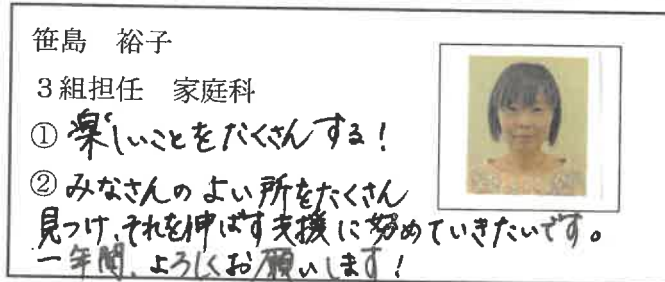 笹島　裕子
３組担任　家庭科
① 楽しいことをたくさんする！
② みなさんのよい所をたくさん
見つけ、それを伸ばす支援に努めていきたいです。
一年間、よろしくお願いします！